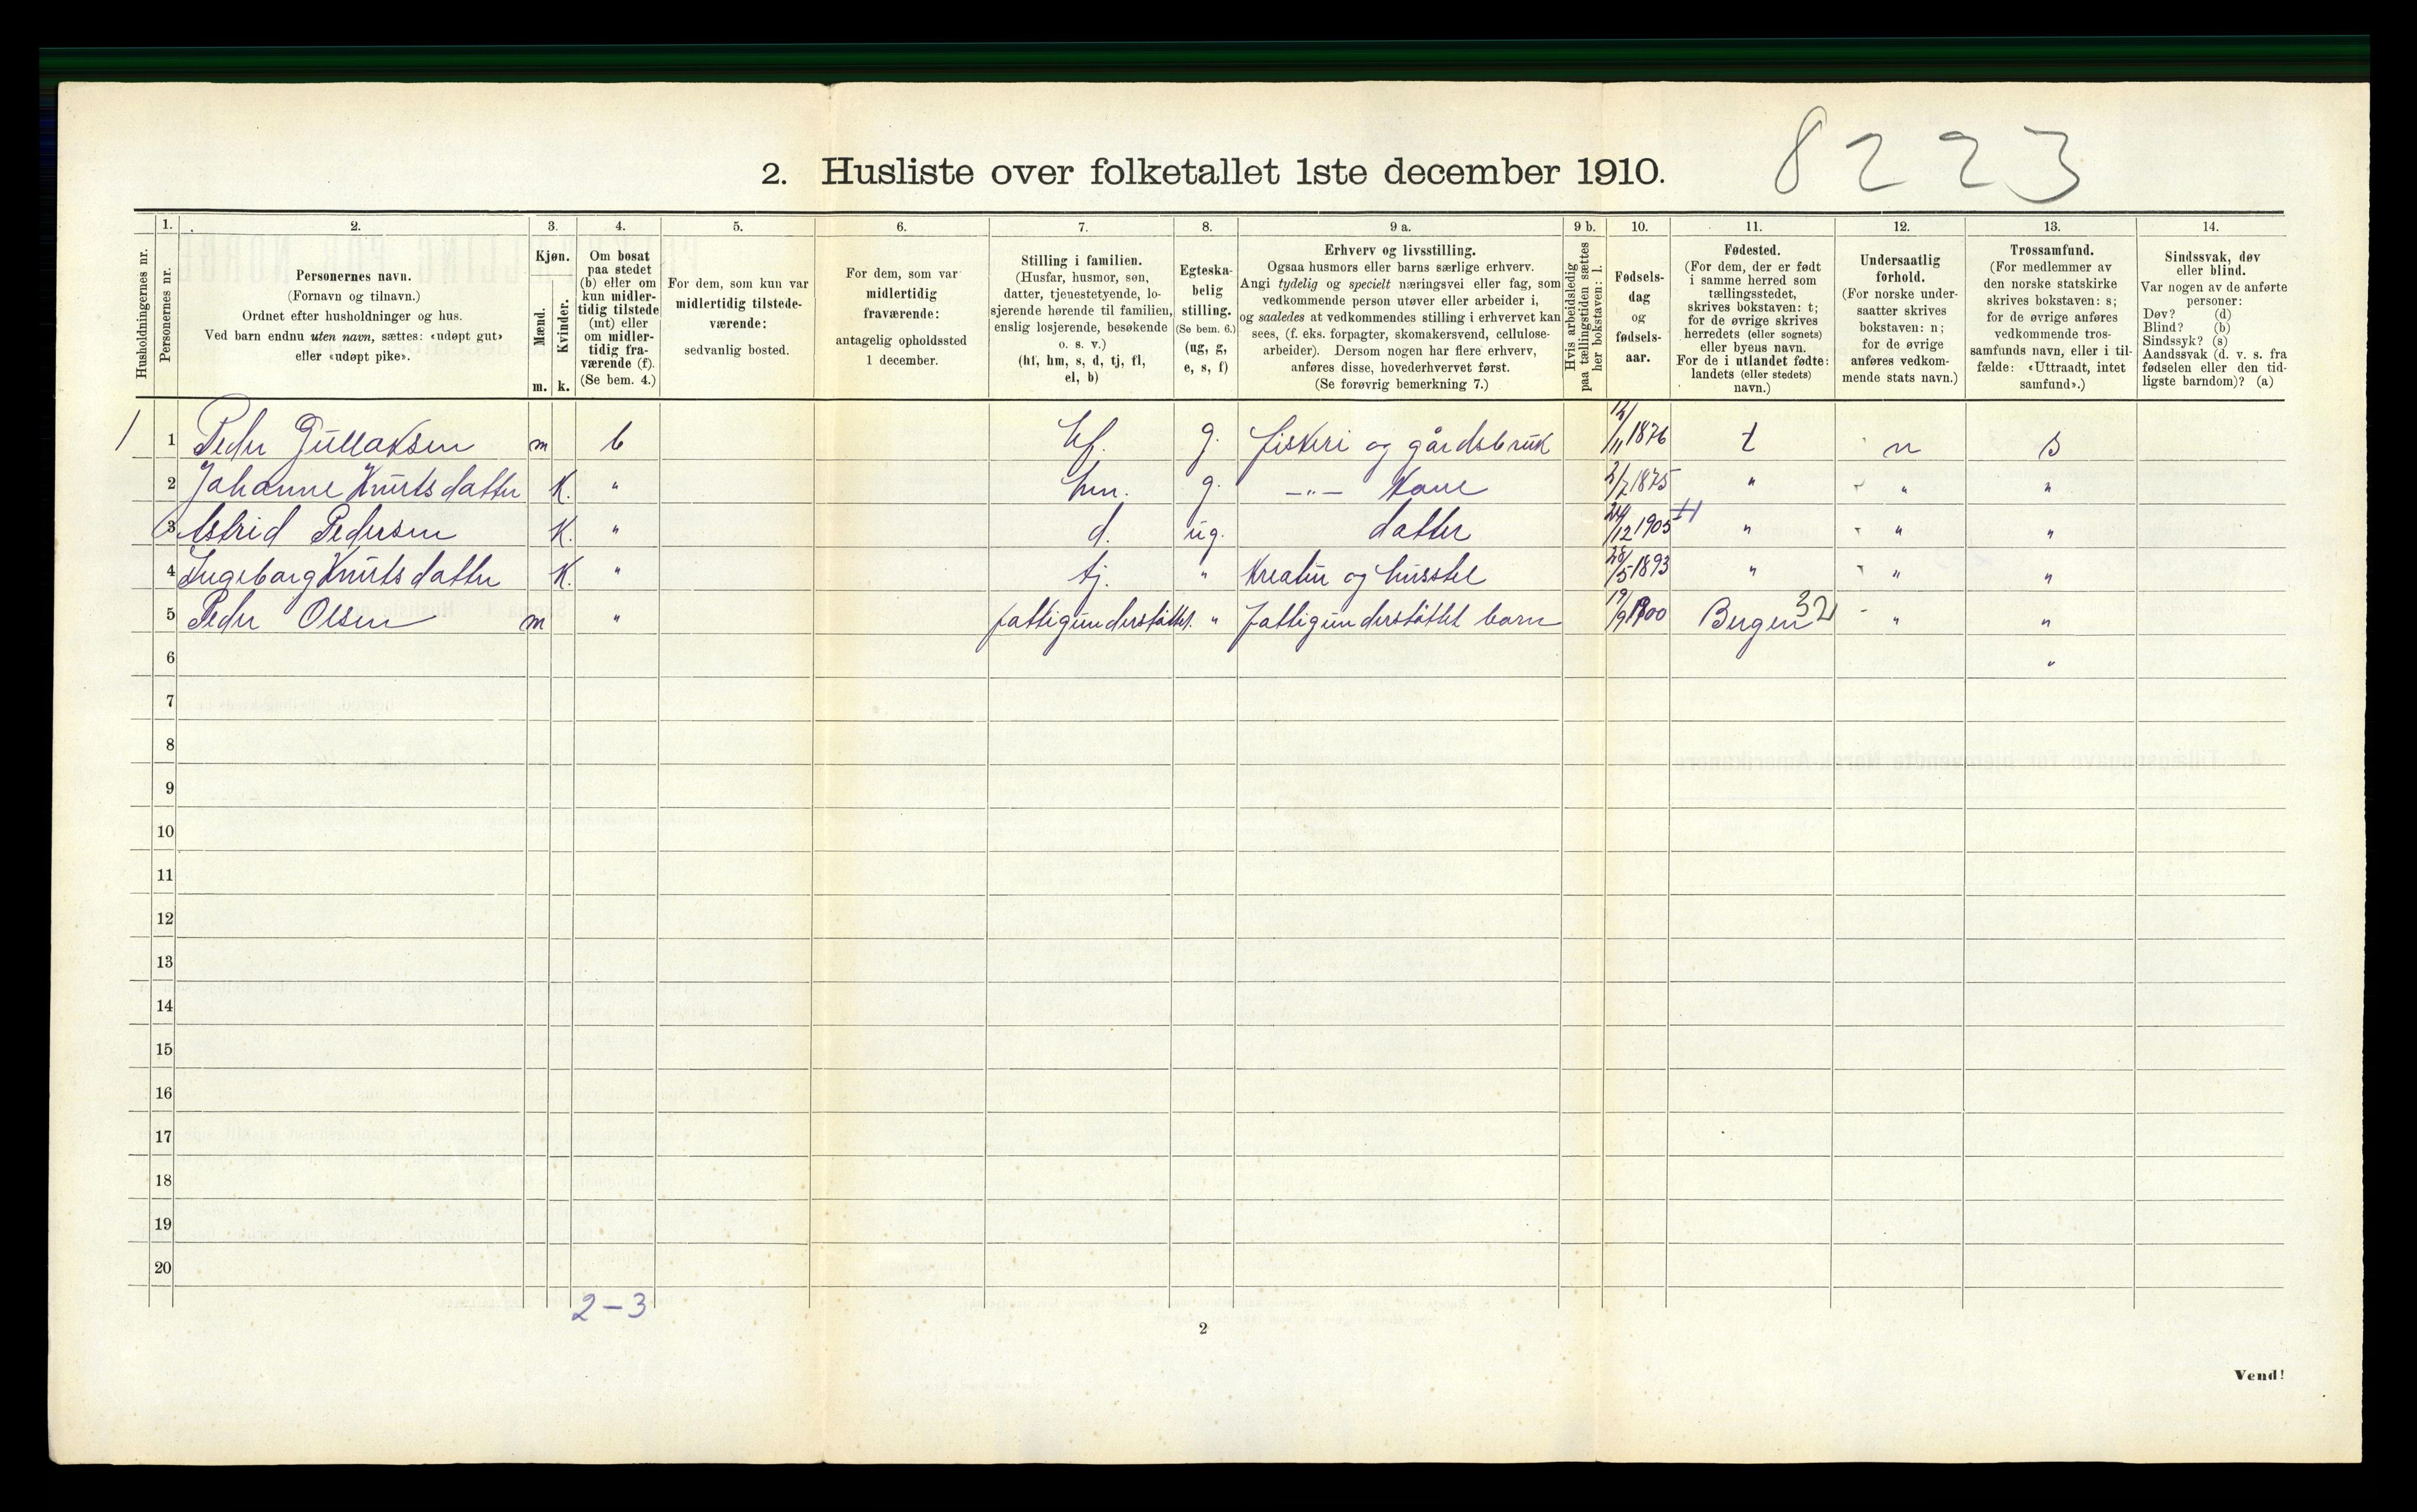 8223
2. Husliste over folketallet 1ste december 1910.
Husholdningernes nr.
1. Personernes nr.
2. Personernes navn.
(Fornavn og tilnavn.)
Ordnet efter husholdninger og hus.
Ved barn endnu uten navn, sættes: «udøpt gut»
eller «udøpt pike».
3. Kjøn.
Mænd. m.
Kvinder. k.
4. Om bosat
paa stedet
(b) eller om
kun midler-
tidig tilstede
(mt) eller
om midler-
tidig fra-
værende (f).
(Se bem. 4.)
5. For dem, som kun var
midlertidig tilstede-
værende:
sedvanlig bosted.
6. For dem, som var
midlertidig
fraværende:
antagelig opholdssted
1 december.
7. Stilling i familien.
(Husfar, husmor, søn,
datter, tjenestetyende, lo-
sjerende hørende til familien,
enslig losjerende, besøkende
o. s. v.)
(hf, hm, s, d, tj, fl,
el, b)
8. Egteska-
belig
stilling.
(Se bem. 6.)
(ug, g,
e, s, f)
9 a. Erhverv og livsstilling.
Ogsaa husmors eller barns særlige erhverv.
Angi tydelig og specielt næringsvei eller fag, som
vedkommende person utøver eller arbeider i,
og saaledes at vedkommendes stilling i erhvervet kan
sees, (f. eks. forpagter, skomakersvend, cellulose-
arbeider). Dersom nogen har flere erhverv,
anføres disse, hovederhvervet først.
(Se forøvrig bemerkning 7.)
9 b. Hvis arbeidsledig
paa tællingstiden sættes
her bokstaven: l.
10. Fødsels-
dag
og
fødsels-
aar.
11. Fødested.
(For dem, der er født
i samme herred som
tællingsstedet,
skrives bokstaven: t;
for de øvrige skrives
herredets (eller sognets)
eller byens navn.
For de i utlandet fødte:
landets (eller stedets)
navn.)
12. Undersaatlig
forhold.
(For norske under-
saatter skrives
bokstaven: n;
for de øvrige
anføres vedkom-
mende stats navn.)
13. Trossamfund.
(For medlemmer av
den norske statskirke
skrives bokstaven: s;
for de øvrige anføres
vedkommende tros-
samfunds navn, eller i til-
fælde: «Uttraadt, intet
samfund».)
14. Sindssvak, døv
eller blind.
Var nogen av de anførte
personer:
Døv? (d)
Blind? (b)
Sindssyk? (s)
Aandssvak (d. v. s. fra
fødselen eller den tid-
ligste barndom)? (a)
1 1 Peder Gullaksen m b hf. g. fiskeri og gårdsbruk /11 1876 t n s
2 Johanne Knutsdatter K. " hm. g. —"— kone 2/7 1875 " " "
3 Astrid Pedersen K. " d. ug. datter 24/12 1905 " " "
4 Ingeborg Knutsdatter K. " tj. " Kreatur og husstel 28/5 1893 " " "
5 Peder Olsen m " fattigunderstøttet. " fattigunderstøttet barn 19/9 1900 Bergen 32 " "
6 "
7
8
9
10
11
12
13
14
15
16
17
18
19
20
2-3
2
Vend!